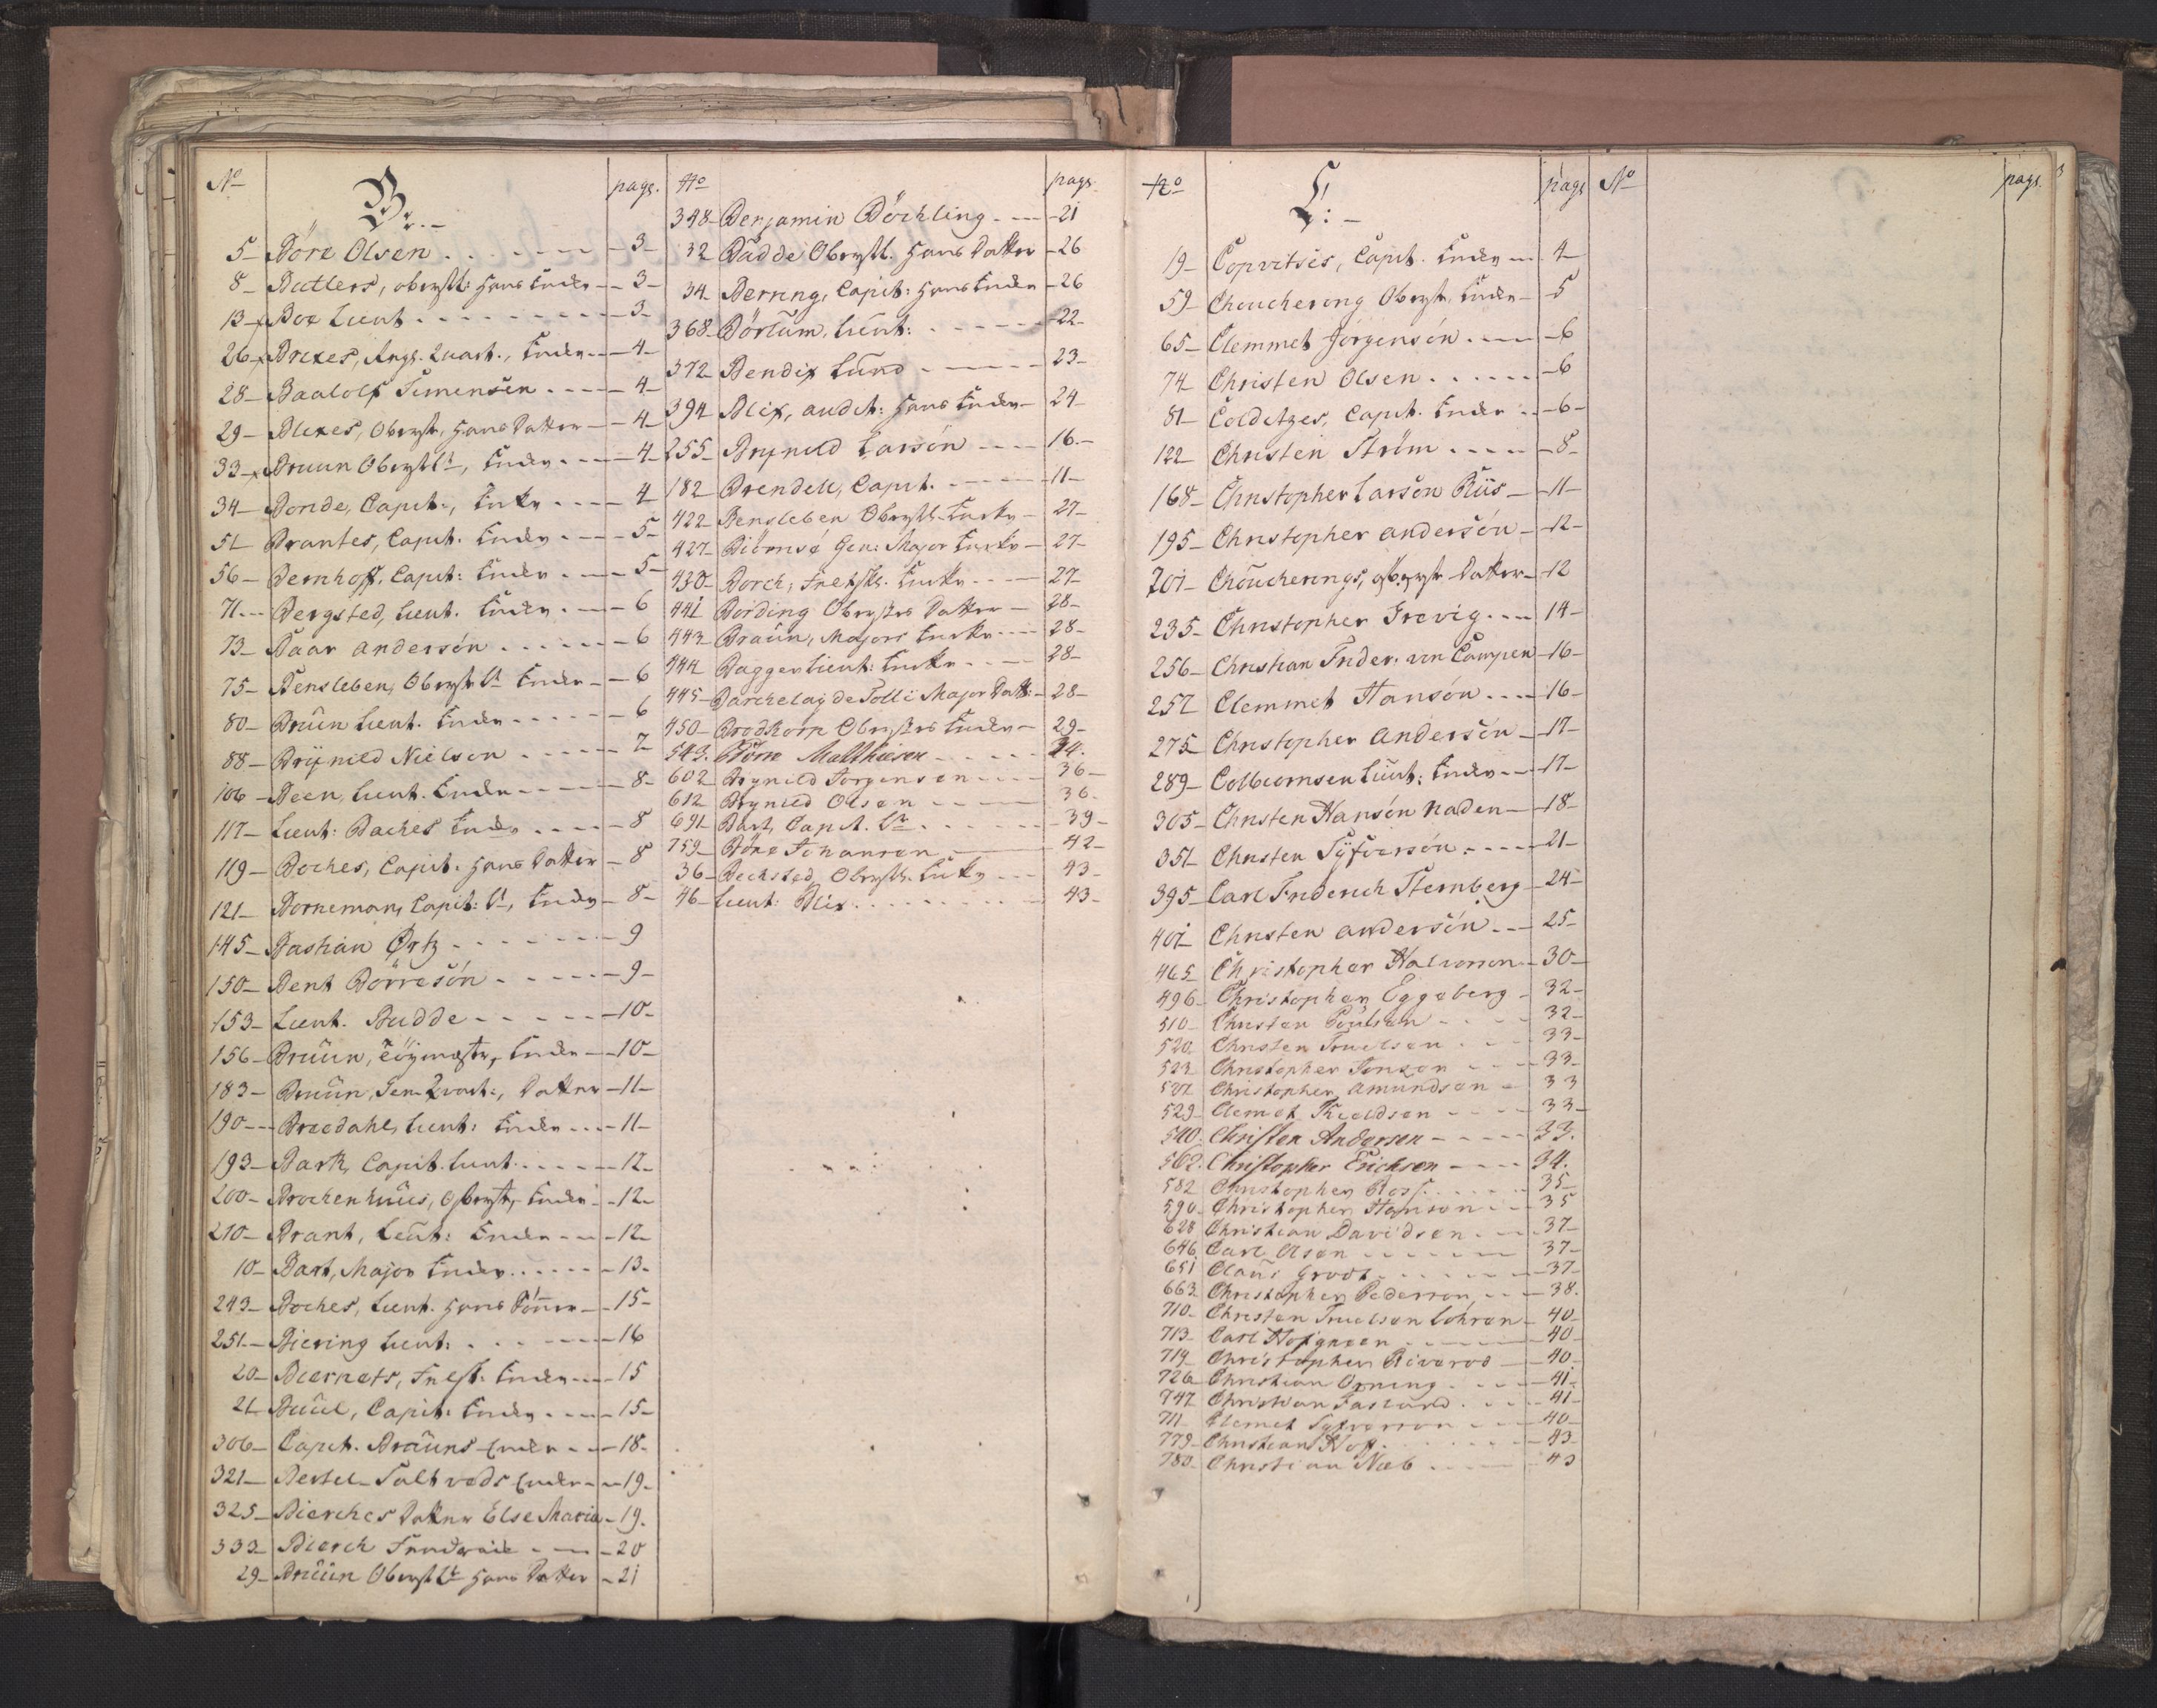 No pag.
B:
5 Böre Olsen 3
8 Butlers, oberstl: Hans Encke 3
13 Box Lieut 3
26 Brexes, Regt. Quart., Encke 4
28 Baaldlf Simensen 4
29 Blixes, Oberst, Hans Datter 4
33 Bruun Oberstlt, Encke 4
34 Bonde, Capit:, Encke 4
51 Brantes, Capit. Encke 5
56 Bernhoff, Capit: Encke 5
71 Bergsted, Lieut. Encke 6
73 Baar andersón 6
75 Bensleben, Oberstlt Encke 6
80 Bruun Lieut. Encke 6
88 Brynild Nielsen 7
106 Been, Lieut. Encke 8
117 Lieut: Baches Encke 8
119 Boches, Capit. Hans Datter 8
121 Borneman, Capit: Lt, Encke 8
145 Bastian Ortz 9
150 Bent Börresón 9
153 Lieut. Budde 10
156 Bruun, Töymestr, Encke 10
183 Bruun, Gen. Qvart:, Datter 11
190 Bredahl, Lieut: Encke 11
193 Bark, Capit. Lieut. 12
200 Brochenhuus, Oberst, Encke 12
210 Brant, Leut: Encke 12
10 Bart, Major Encke 13
243 Boches, Lieut. Hans Sönner 15
251 Biering Lieut: 16
20 Biernats, Encke 15
21 Buul, Capit: Encke 15
306 Capit. Bruuns Encke 18
321 Bertel Saltveds Encke 19
325 Bierches Datter Else Maria 19
333 Bierch 20
29 Bruun Oberstlt Hans Datter 21
No pag.
348 Benjamin Böchling 21
32 Budde Oberstl. Hans Datter 26
34 Berring, Capit: Hans Encke 26
368 Börtum, Lieut: 22
372 Bendix Lund 23
394 Blix, audit: Hans Encke 24
255 Brynild Larsón 16
182 Brendell, Capit. 11
422 Bensleben Oberstl. Encke 27
427 Biörnsö Gen: Major Encke 27
430 Borch, Encke 27
441 Bording Obersters Datter 28
443 Braun, Majors Encke 28
444 Bagger Lieut: Encke 28
445 Barchelay de Tolli Major Datt: 28
450 Brodkorp Obersters Encke 29
543. Börre Matthiesen 34.
602 Brynild Jorgensen 36
612 Brynild Olsen 36
691 Bart, Capit. Lt 39
759 Böre Johansen 42
36 Bechsted, Oberstl. Encke 43
46 Lieut: Blix 43
No pag.
C:
19 Copvitses, Capit. Encke 4
59 Choucherong Oberst, Encke 5
65 Clemmet Jörgensón 6
74 Christen Olsen 6
81 Colditzes, Capit. Encke 6
122 Christen Ström 8
168 Christopher Larsón Riis 11
195 Christopher andersón 12
201 Choucherings, oberst Datter 12
235 Christopher Grevig 14
256 Christian Frider: von Campen 16
257 Clemmet Hansón 16
275 Christopher andersón 17
289 Colbiornsen Lieut: Encke 17
305 Christen Hansón Naden 18
351 Christen Syfversón 21
395 Carl Friderich Sternberg 24
401 Christen andersón 25
465 Christopher Halvorsen 30
496 Christopher Eggeberg 32
510 Christen Poulsen 32
520 Christen Truelsen 33
523 Christopher Jonsen 33
527 Christopher Amundsen 33
529 Clemet Kieldsen 33
540. Christen Andersen 33.
562. Christopher Erichsen 34.
582 Christopher Ross 35
590 Christopher Hansen 35
628 Christian Davidsen 37
646 Carl Olsen 37
651 Claus Groot 37
663 Christopher Pedersen 38.
710 Christen Truelsen Löhren 40
713 Carl Hofgreen 40
714 Christopher Riverod 40
726 Christian Orning 41
747 Christian Fastund 41
711 Clemet Syfversen 40
779 Christian Hoff 43
780 Christian Næb 43
No pag. 3